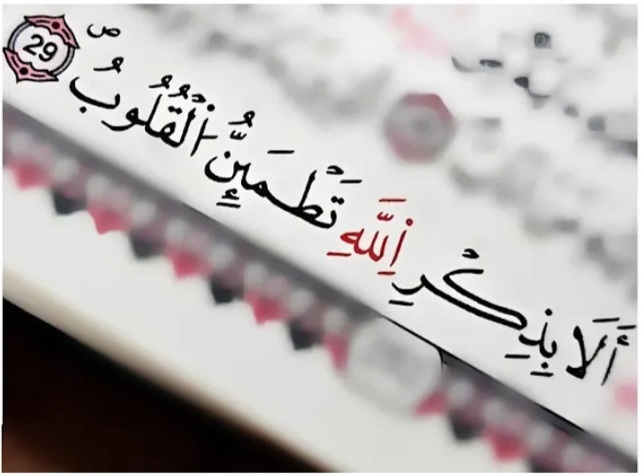 أَلَا بِذِكْرِ اللَّهِ تَطْمَئِنُّ الْقُلُوبُ ص 29